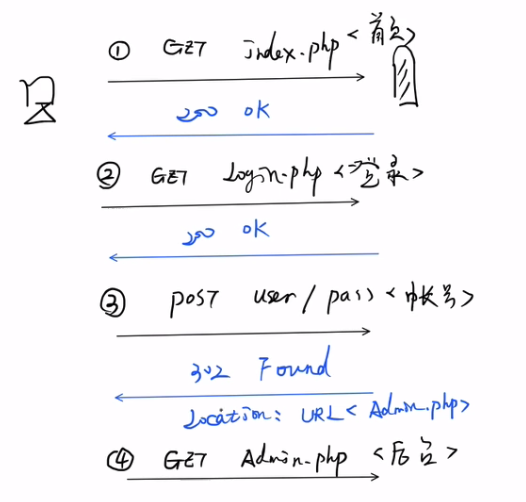 ① GET index.php <首页>
200 OK
② GET login.php <登录>
200 OK
③ POST user / pass <帐号>
302 Found
Location: URL < Admin.php>
④ GET Admin.php <后台>